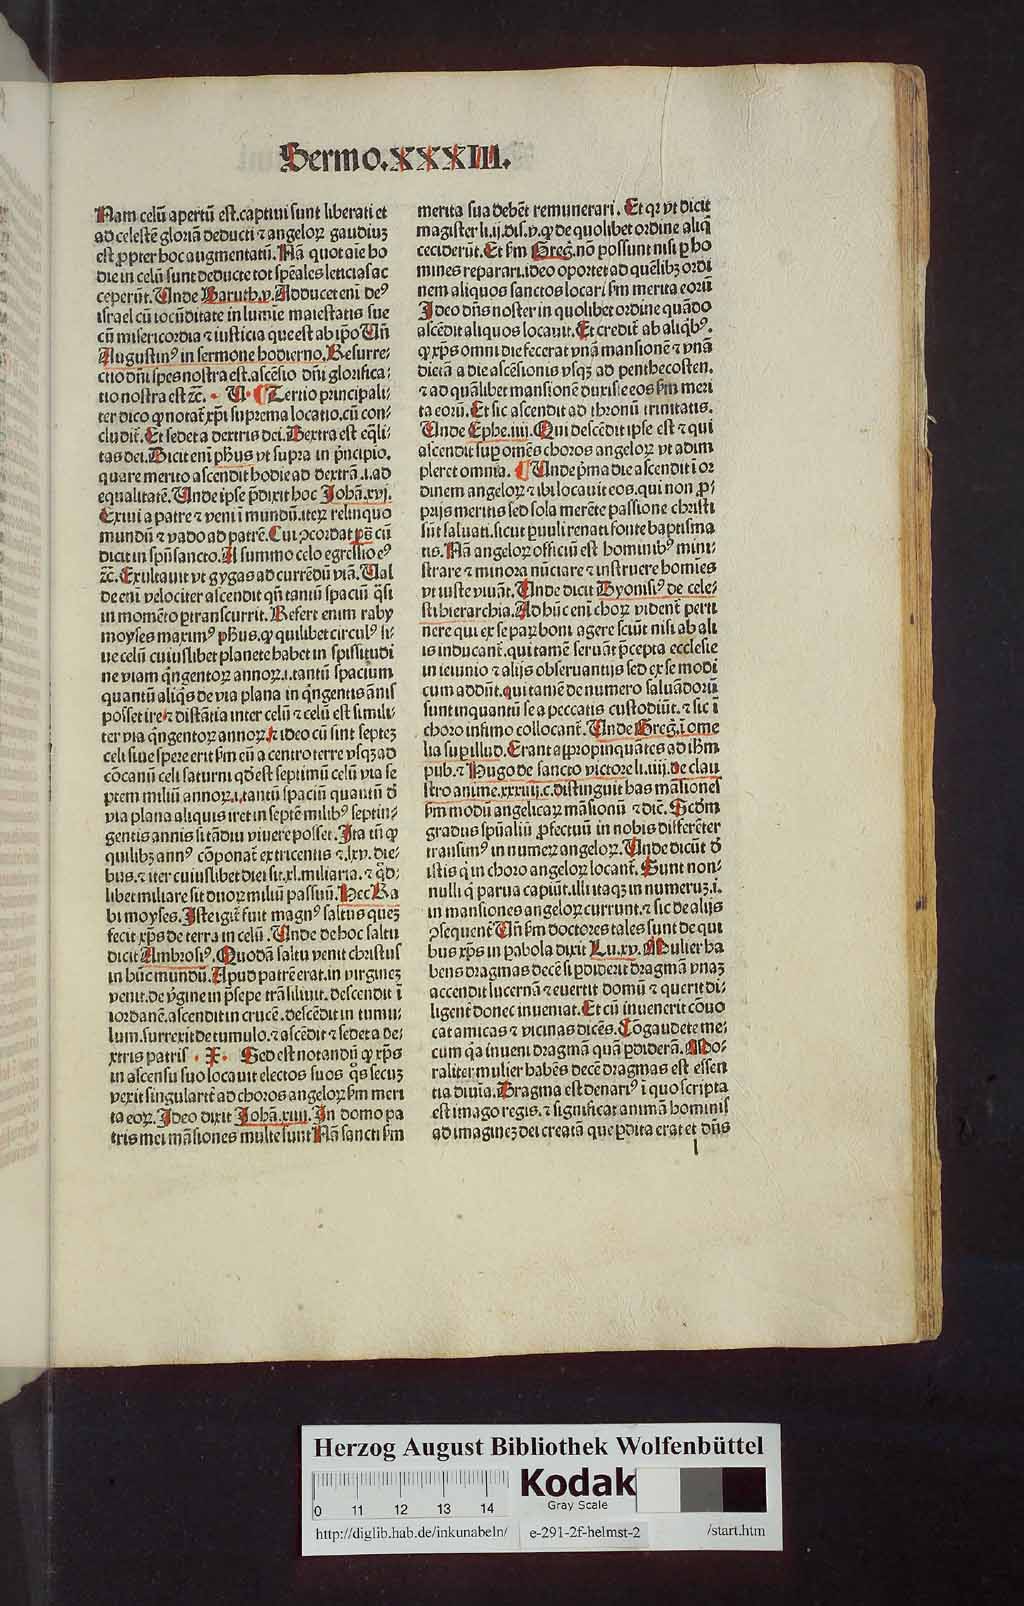 Sermo.XXXIII.
Nam celū apertū est.captiui sunt liberati et
ad celestē gloriā deducti ⁊ angeloꝝ gaudiuꝫ
est ꝓpter hoc augmentatū. Nā quot aīe ho
die in celū sunt deducte tot spēales leticias ac
ceperūt. Unde Baruth.v. Adducet eni deꝰ
israel cū iocūditate in lumīe maiestatis sue
cū misericordia ⁊ iusticia que est ab ip̄o Uñ
Augustinꝰ in sermone hodierno. Resurre⸗
ctio dn̄i spes nostra est.ascēsio dn̄i glorifica⸗
tio nostra est ⁊c̄. V. ¶ Tertio principali⸗
ter dico ꝙ notat᷑ xp̄i suprema locatio.cū con⸗
cludit᷑. Et sedet a dextris dei. Dextra est eq̄li⸗
tas dei. Dicit eni pħus vt supra in pͥncipio.
quare merito ascendit hodie ad dextrā.i.ad
equalitatē. Unde ipse p̄dixit hoc Johā.xvj.
Exiui a patre ⁊ veni ī mundū.iteꝝ relinquo
mundū ⁊ vado ad patrē. Cui ꝯcordat ps̄ cū
dicit in spū sancto. A summo celo egressio eꝰ
⁊c̄. Exultauit vt gygas ad currēdū viā. Ual
de eni velociter ascendit qn̄ tantū spaciū q̄si
in momēto ꝑtranscurrit. Refert enim raby
moyses maximꝰ pħus.ꝙ quilibet circulꝰ si⸗
ue celū cuiuslibet planete habet in spissitudi
ne viam qͥngentoꝝ annoꝝ.i.tantū spacium
quantū aliqͥs de via plana in qͥngentis ānis
posset ire ⁊ distātia inter celū ⁊ celū est simili⸗
ter via qͥngentoꝝ annoꝝ ⁊ ideo cū sint septeꝫ
celi siue spere erit ẜm eū a centro terre vsqꝫ ad
cōcauū celi saturni qd̓ est septimū celū via se
ptem miliū annoꝝ.i.tantū spaciū quantū d̓
via plana aliquis iret in septē milibꝰ septin⸗
gentis annis si tādiu viuere posset. Ita tn̄ ꝙ
quilibꝫ annꝰ cōponat᷑ ex tricentis ⁊.lxv. die⸗
bus.⁊ iter cuiuslibet diei sit.xl.miliaria. ⁊ qͦd⸗
libet miliare sit duoꝝ miliū passuū. Hec Ra
bi moyses. Iste igit᷑ fuit magnꝰ saltus queꝫ
fecit xp̄s de terra in celū. Unde de hoc saltu
dicit Ambrosiꝰ. Quodā saltu venit christus
in hūc mundū. Apud patrē erat.in virgineꝫ
venit.de v̓gine in p̄sepe trāsiliuit. descendit ī
iordanē.ascendit in crucē.descēdit in tumu⸗
lum.surrexit de tumulo.⁊ ascēdit ⁊ sedet a de⸗
xtris patris . X. Sed est notandū ꝙ xp̄s
in ascensu suo locauit electos suos qͦs secuꝫ
vexit singularit᷑ ad choros angeloꝝ ẜm meri
ta eoꝝ. Ideo dixit Johā.xiiij. In domo pa
tris mei māsiones multe sunt Nā sancti ẜm
merita sua debēt remunerari. Et qꝛ vt dicit
magister li.ij.dis.v.ꝙ de quolibet ordine aliq̄
ceciderūt. Et ẜm Greg̓.nō possunt nisi ꝑ ho
mines reparari.ideo oportet ad quēlibꝫ ordi
nem aliquos sanctos locari ẜm merita eorū
Ideo dn̄s noster in quolibet ordine quādo
ascēdit aliquos locauit. Et credit᷑ ab aliqͥbꝰ.
ꝙ xp̄s omni die fecerat vnā mansionē ⁊ vnā
dietā a die ascēsionis vsqꝫ ad penthecosten.
⁊ ad quālibet mansionē duxisse eos ẜm meri
ta eorū. Et sic ascendit ad thronū trinitatis.
Unde Ephe.iiij. Qui descēdit ipse est ⁊ qui
ascendit suꝑ omēs choros angeloꝝ vt adim
pleret omnia. ¶ Unde pͥma die ascendit ī or
dinem angeloꝝ ⁊ ibi locauit eos.qui non ꝓ⸗
prijs meritis sed sola merēte passione christi
sūt saluati.sicut puuli renati fonte baptisma
tis. Nā angeloꝝ officiū est hominibꝰ mini⸗
strare ⁊ minora nūciare ⁊ instruere homies
vt iuste viuāt. Unde dicit Dyonisiꝰ de cele⸗
sti hierarchia. Ad hūc eni choꝝ vident᷑ perti
nere qui ex se paꝝ boni agere sciūt nisi ab ali
is inducant᷑.qui tamē seruāt p̄cepta ecclesie
in ieiunio ⁊ alijs obseruantijs sed ex se modi
cum addūt.qui tamē de numero saluādorū
sunt inquantū se a peccatis custodiūt.⁊ sic ī
choro infimo collocant᷑. Unde Greg̓.ī ome
lia suꝑ illud. Erant appropinquātes ad ihm̄
pub.⁊ Hugo de sancto victore li.iiij.de clau
stro anime.xxxiij.c.distinguit has māsiones
ẜm modū angelicaꝝ māsionū ⁊ dic̄. Scd̓m
gradus spūaliū ꝓfectuū in nobis differēter
transimꝰ in numeꝝ angeloꝝ. Unde dicūt d̓
istis qͥ in choro angeloꝝ locant᷑. Sunt non⸗
nulli qͥ parua capiūt.illi itaqꝫ in numeruꝫ.i.
in mansiones angeloꝝ currunt.⁊ sic de alijs
ꝯsequent᷑ Uñ ẜm doctores tales sunt de qui
bus xp̄s in ꝑabola dixit Lu.xv. Mulier ha
bens dragmas decē si ꝑdiderit dragmā vnaꝫ
accendit lucernā ⁊ euertit domū ⁊ querit di⸗
ligent᷑ donec inueniat. Et cū inuenerit cōuo
cat amicas ⁊ vicinas dicēs. Cōgaudete me⸗
cum qͥa inueni dragmā quā ꝑdiderā. Mo⸗
raliter mulier habēs decē dragmas est essen
tia diuīa. Dragma est denariꝰ ī quo scripta
est imago regis.⁊ significat animā hominis
ad imagineꝫ dei creatā que ꝑdita erat et dn̄s
l
Herzog August Bibliothek Wolfenbüttel
0 11 12 13 14
Kodak
Gray Scale
http://diglib.hab.de/inkunabeln/ e-291-2f-helmst-2 /start.htm